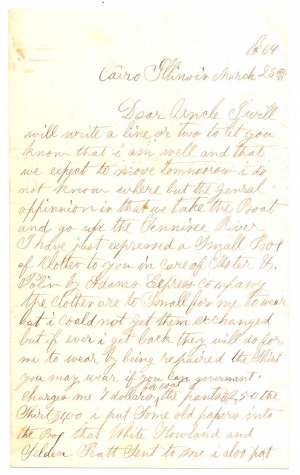 64
Cairo Illinois March 25th
Dear Uncle I will
will write a line or two to let you
know that i am well and that
we expect to move tomorrow i do
not know where but the genral
oppinnion is that us take the Boat
and go up the Tennisee River
I have just expressed a Small Box
of Clothes to you in care of &
by Adams Express company
the clothes are to Small for me to wear
but i could not get them exchanged
but if ever i get back they will do for
me to wear by being repaired the Shirt
you may wear if you can goverment
for coat
Charges me 7 dollars the pants 2,50 the
Shirt i put Some old papers into
the Box that White Howland and
Pratt Sent to me i also put